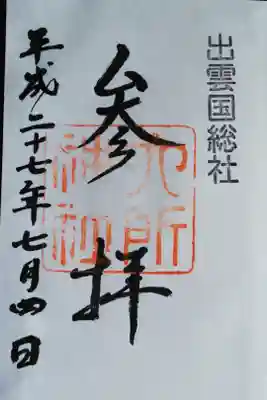 出雲国総社
参拝
六所神社
平成二十七年七月四日